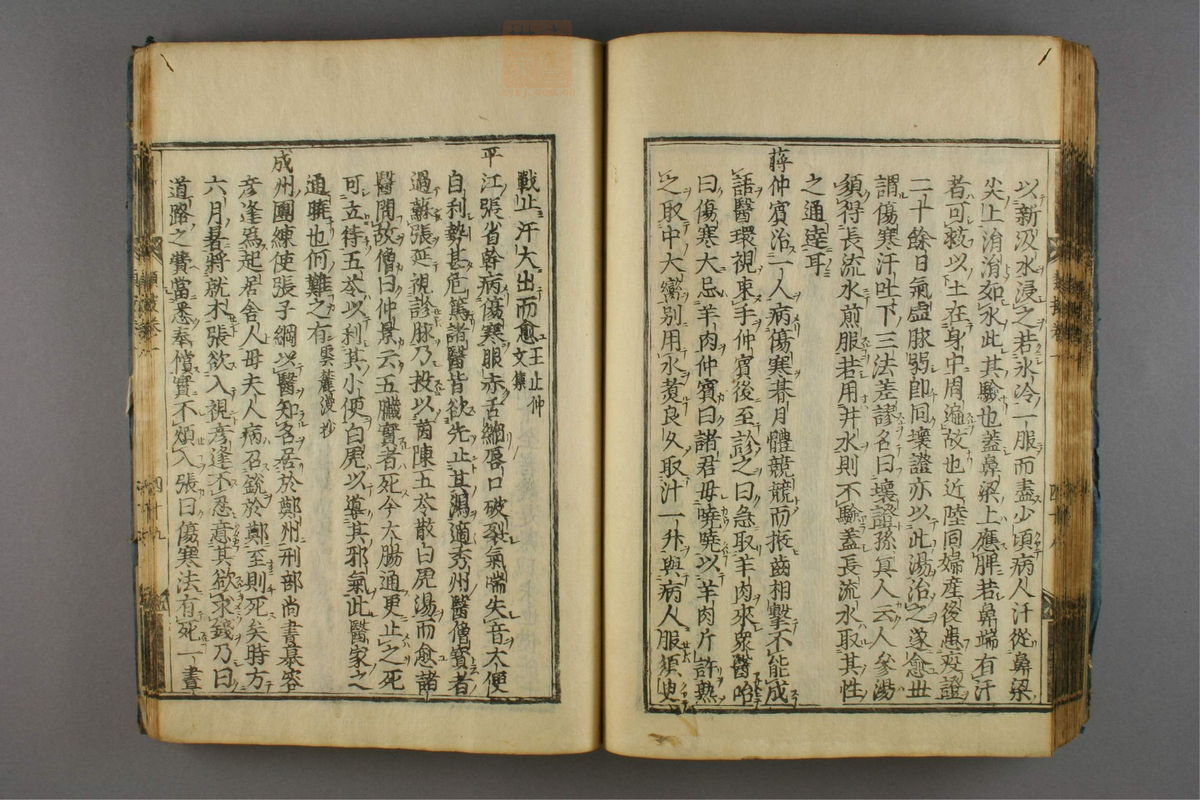 以新汲水浸之若氷冷一服而盡少頃病人汗從鼻梁
尖上涓涓如水此其驗也蓋鼻梁上應脾若鼻端有汗
者可救以土在身中周遍故也近陸同婦産後患疫證
二十餘日氣虚脉弱即同壞證亦以此湯治之遂愈世
謂傷寒汗吐下三法差謬名曰壞證孫真人云人參湯
須得長流水煎服若用井水則不驗蓋長流水取其性
之通達耳
蔣仲賓治一人病傷寒朞月體兢兢而振齒相擊不能成
語醫環視束手仲賓後至診之曰急取羊肉來衆醫咍
曰傷寒大忌羊肉仲賓曰諸君毋曉曉以羊肉斤許熟
之取中大臠別用水煑良久取汁一升與病人服須臾
戰止汗大出而愈王止仲文集
平江張省幹病傷寒眼赤舌縮唇口破裂氣喘失音大便
自利勢甚危篤諸醫皆欲先止其瀉適秀州醫僧寶者
過蘇張延視診脉乃投以茵陳五苓散白虎湯而愈諸
醫問故僧曰仲景云五臟實者死今大腸通更止之死
可立待五苓以利其小便白虎以導其邪氣此醫家之
通曉也何難之有雲麓漫抄
成州團練使張子綱以醫知名居於鄭州刑部尚書慕容
彦逢爲起居舍人母夫人病召銳於鄭至則死矣時方
六月暑將就木張欲入視彦逢不忍意其欲求錢乃曰
道路之費當悉奉償實不煩入張曰傷寒法有死一晝